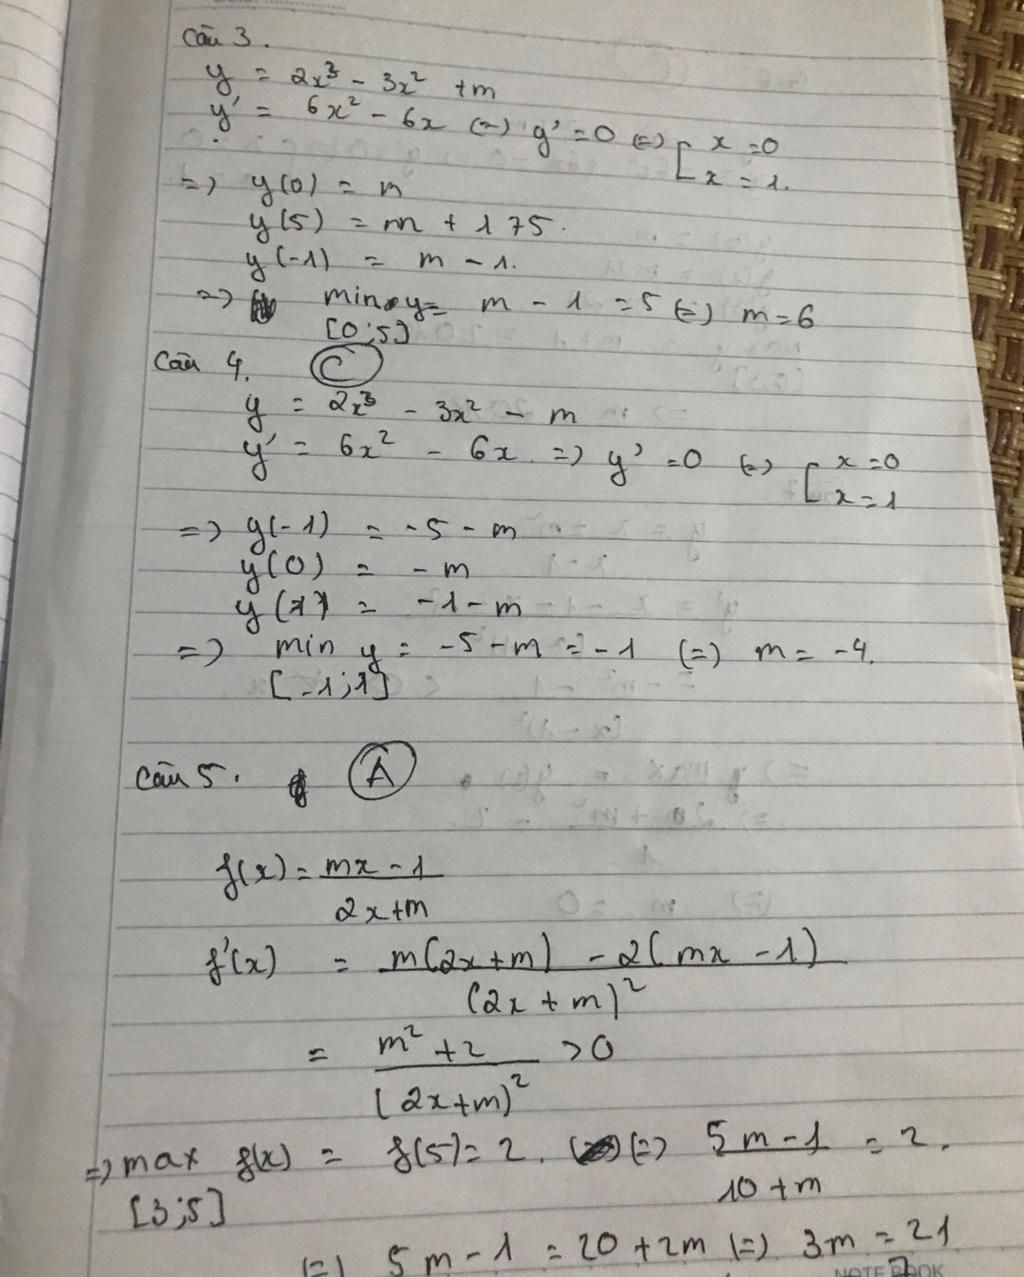 Câu 3.
y = 2x³ - 3x² + m
y' = 6x² - 6x (=) y' = 0 (=) [ x = 0
x = 1.
=) y(0) = m
y(5) = m + 175.
y(-1) = m - 1.
=) min y = m - 1 = 5 (=) m = 6
[0;5]
Câu 4. C
y = 2x³ - 3x² - m
y' = 6x² - 6x =) y' = 0 (=) [ x = 0
x = 1
=) y(-1) = -5 - m
y(0) = -m
y(1) = -1 - m
=) min y = -5 - m = -1 (=) m = -4.
[-1;1]
Câu 5. A
f(x) = mx - 1
2x + m
f'(x) = m(2x + m) - 2(mx - 1)
(2x + m)²
= m² + 2 > 0
(2x + m)²
=) max f(x) = f(5) = 2. (=) 5m - 1 = 2.
[3;5] 10 + m
(=) 5m - 1 = 20 + 2m (=) 3m = 21